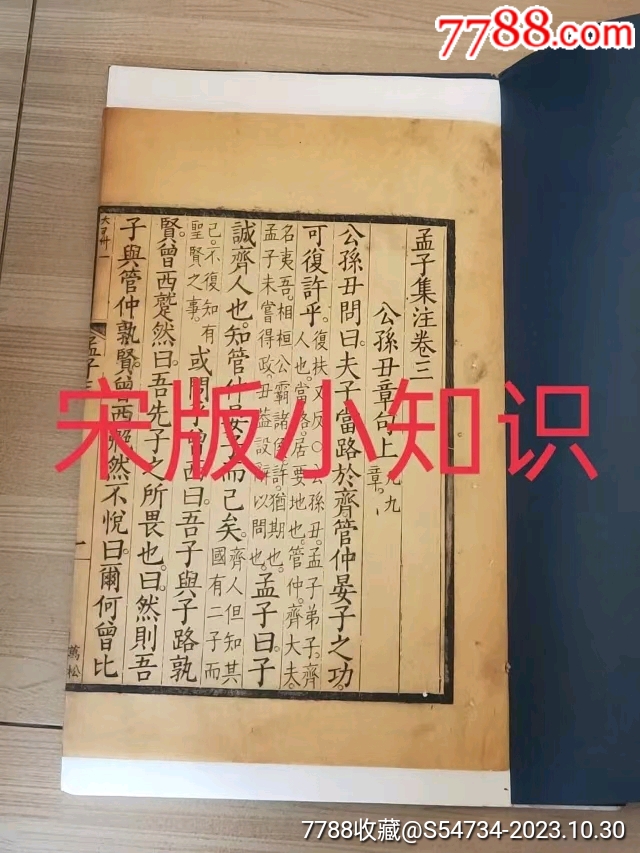 7788.com
孟子集注卷三
公孫丑章句上凡九
章
公孫丑問曰夫子當路於齊管仲晏子之功
可復許乎。復扶又反○公孫丑。孟子弟子。齊
人也。當路。居要地也。管仲。齊大夫。
名夷吾。相桓公。霸諸侯。許。猶期也。
孟子未嘗得政。丑蓋設辭以問也。孟子曰。子
誠齊人也。知管仲晏子而已矣。齊人但知其
國有二子而
已。不復知有
聖賢之事。或問乎曾西曰。吾子與子路孰
賢。曾西蹵然曰。吾先子之所畏也。曰。然則吾
子與管仲孰賢。曾西艴然不悅曰。爾何曾比
孟子三
一
萬松
宋版小知识
7788收藏@S54734-2023.10.30